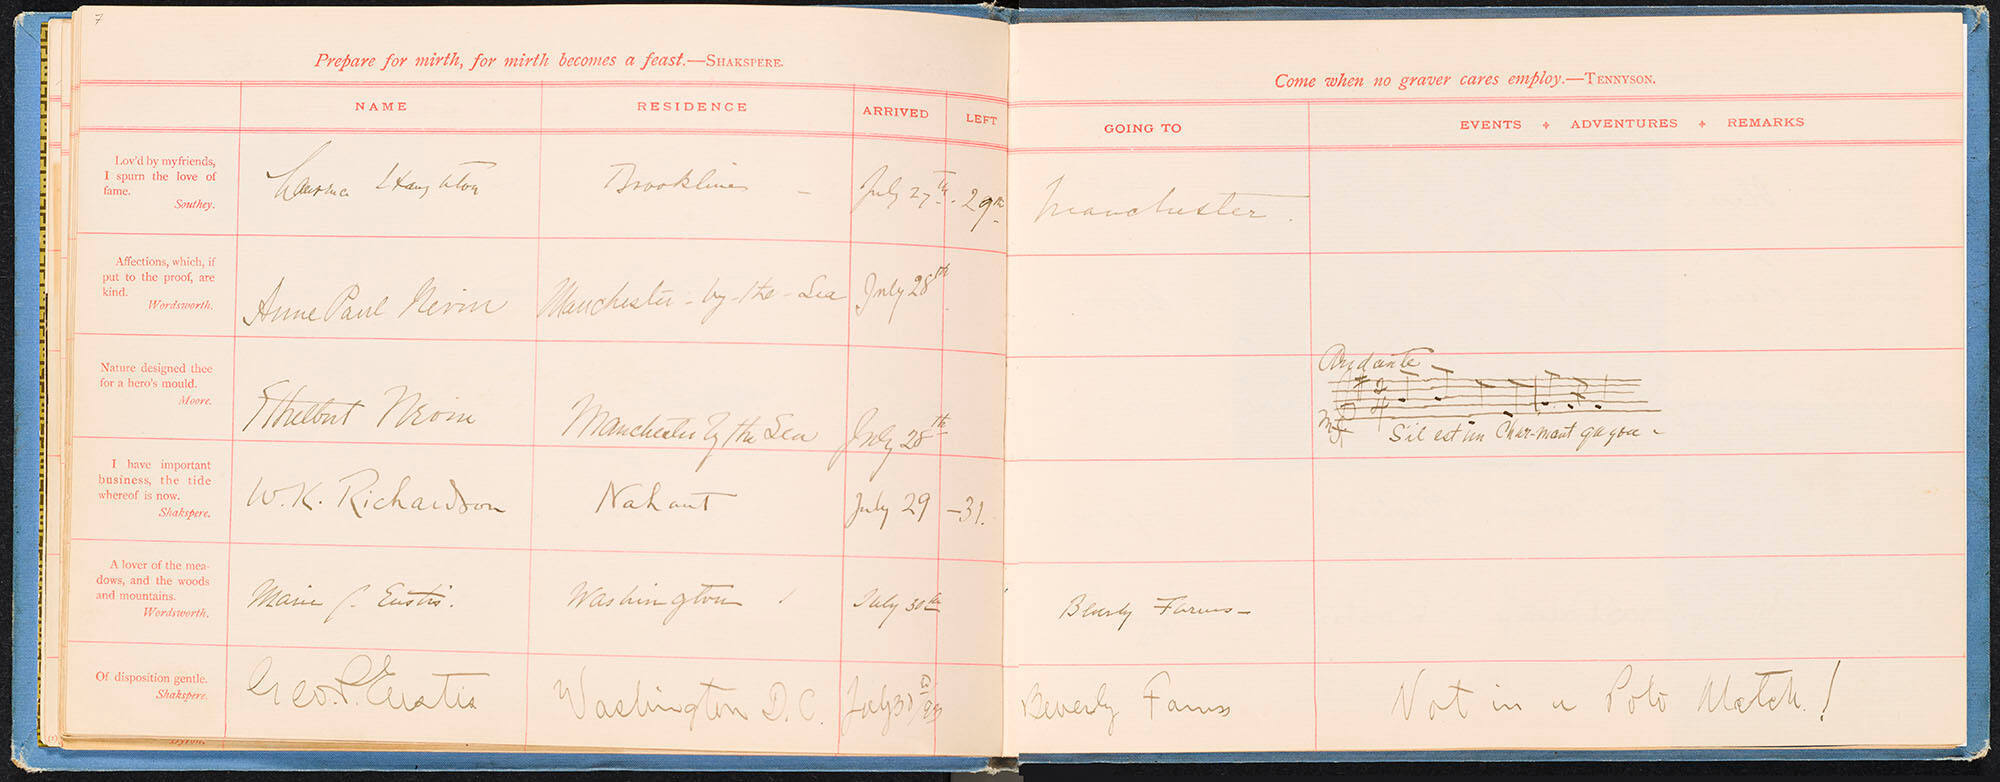 7
Prepare for mirth, for mirth becomes a feast.—SHAKSPERE.
Come when no graver cares employ.—TENNYSON.
NAME RESIDENCE ARRIVED LEFT GOING TO EVENTS + ADVENTURES + REMARKS
Lov'd by my friends,
I spurn the love of
fame.
Southey.
Brookline – July 27th. 29th Manchester.
Affections, which, if
put to the proof, are
kind.
Wordsworth.
Anne Paul Nevin Manchester-by-the-Sea July 28th
Nature designed thee
for a hero's mould.
Moore.
Ethelbert Nevin Manchester by the Sea July 28th
Andante
2
4
mf
S'il est un Char-mant
I have important
business, the tide
whereof is now.
Shakspere.
W. K. Richardson Nahant July 29 –31.
A lover of the mea-
dows, and the woods
and mountains.
Wordsworth.
Marie C. Eustis. Washington July 30th Beverly Farms–
Of disposition gentle.
Shakspere.
Geo. P. Eustis Washington D.C. July 30 Beverly Farms Not in a Polo Match!
Byron.